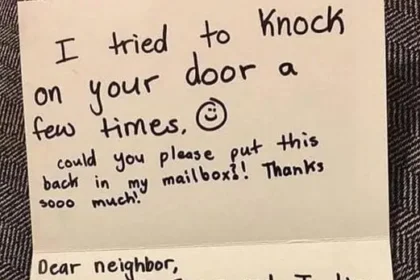 I tried to knock
on your door a
few times.
could you please put this
back in my mailbox?! Thanks
sooo much!
Dear neighbor,